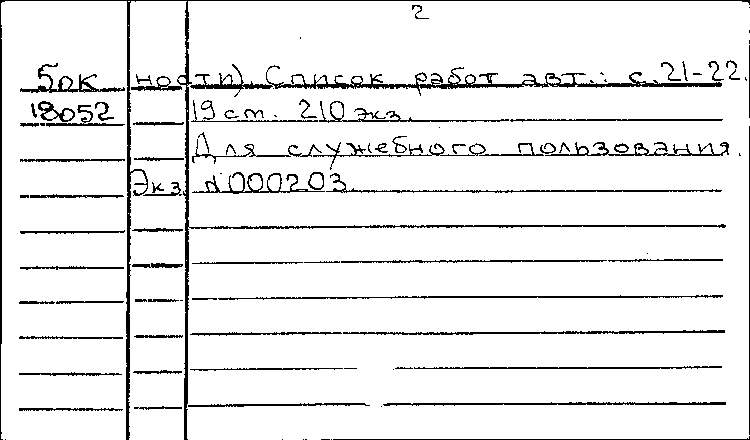 2
5ДК ности). Список работ авт.: с.21-22.
18052 19 ст. 210 экз.
Для служебного пользования.
Экз. N000203.